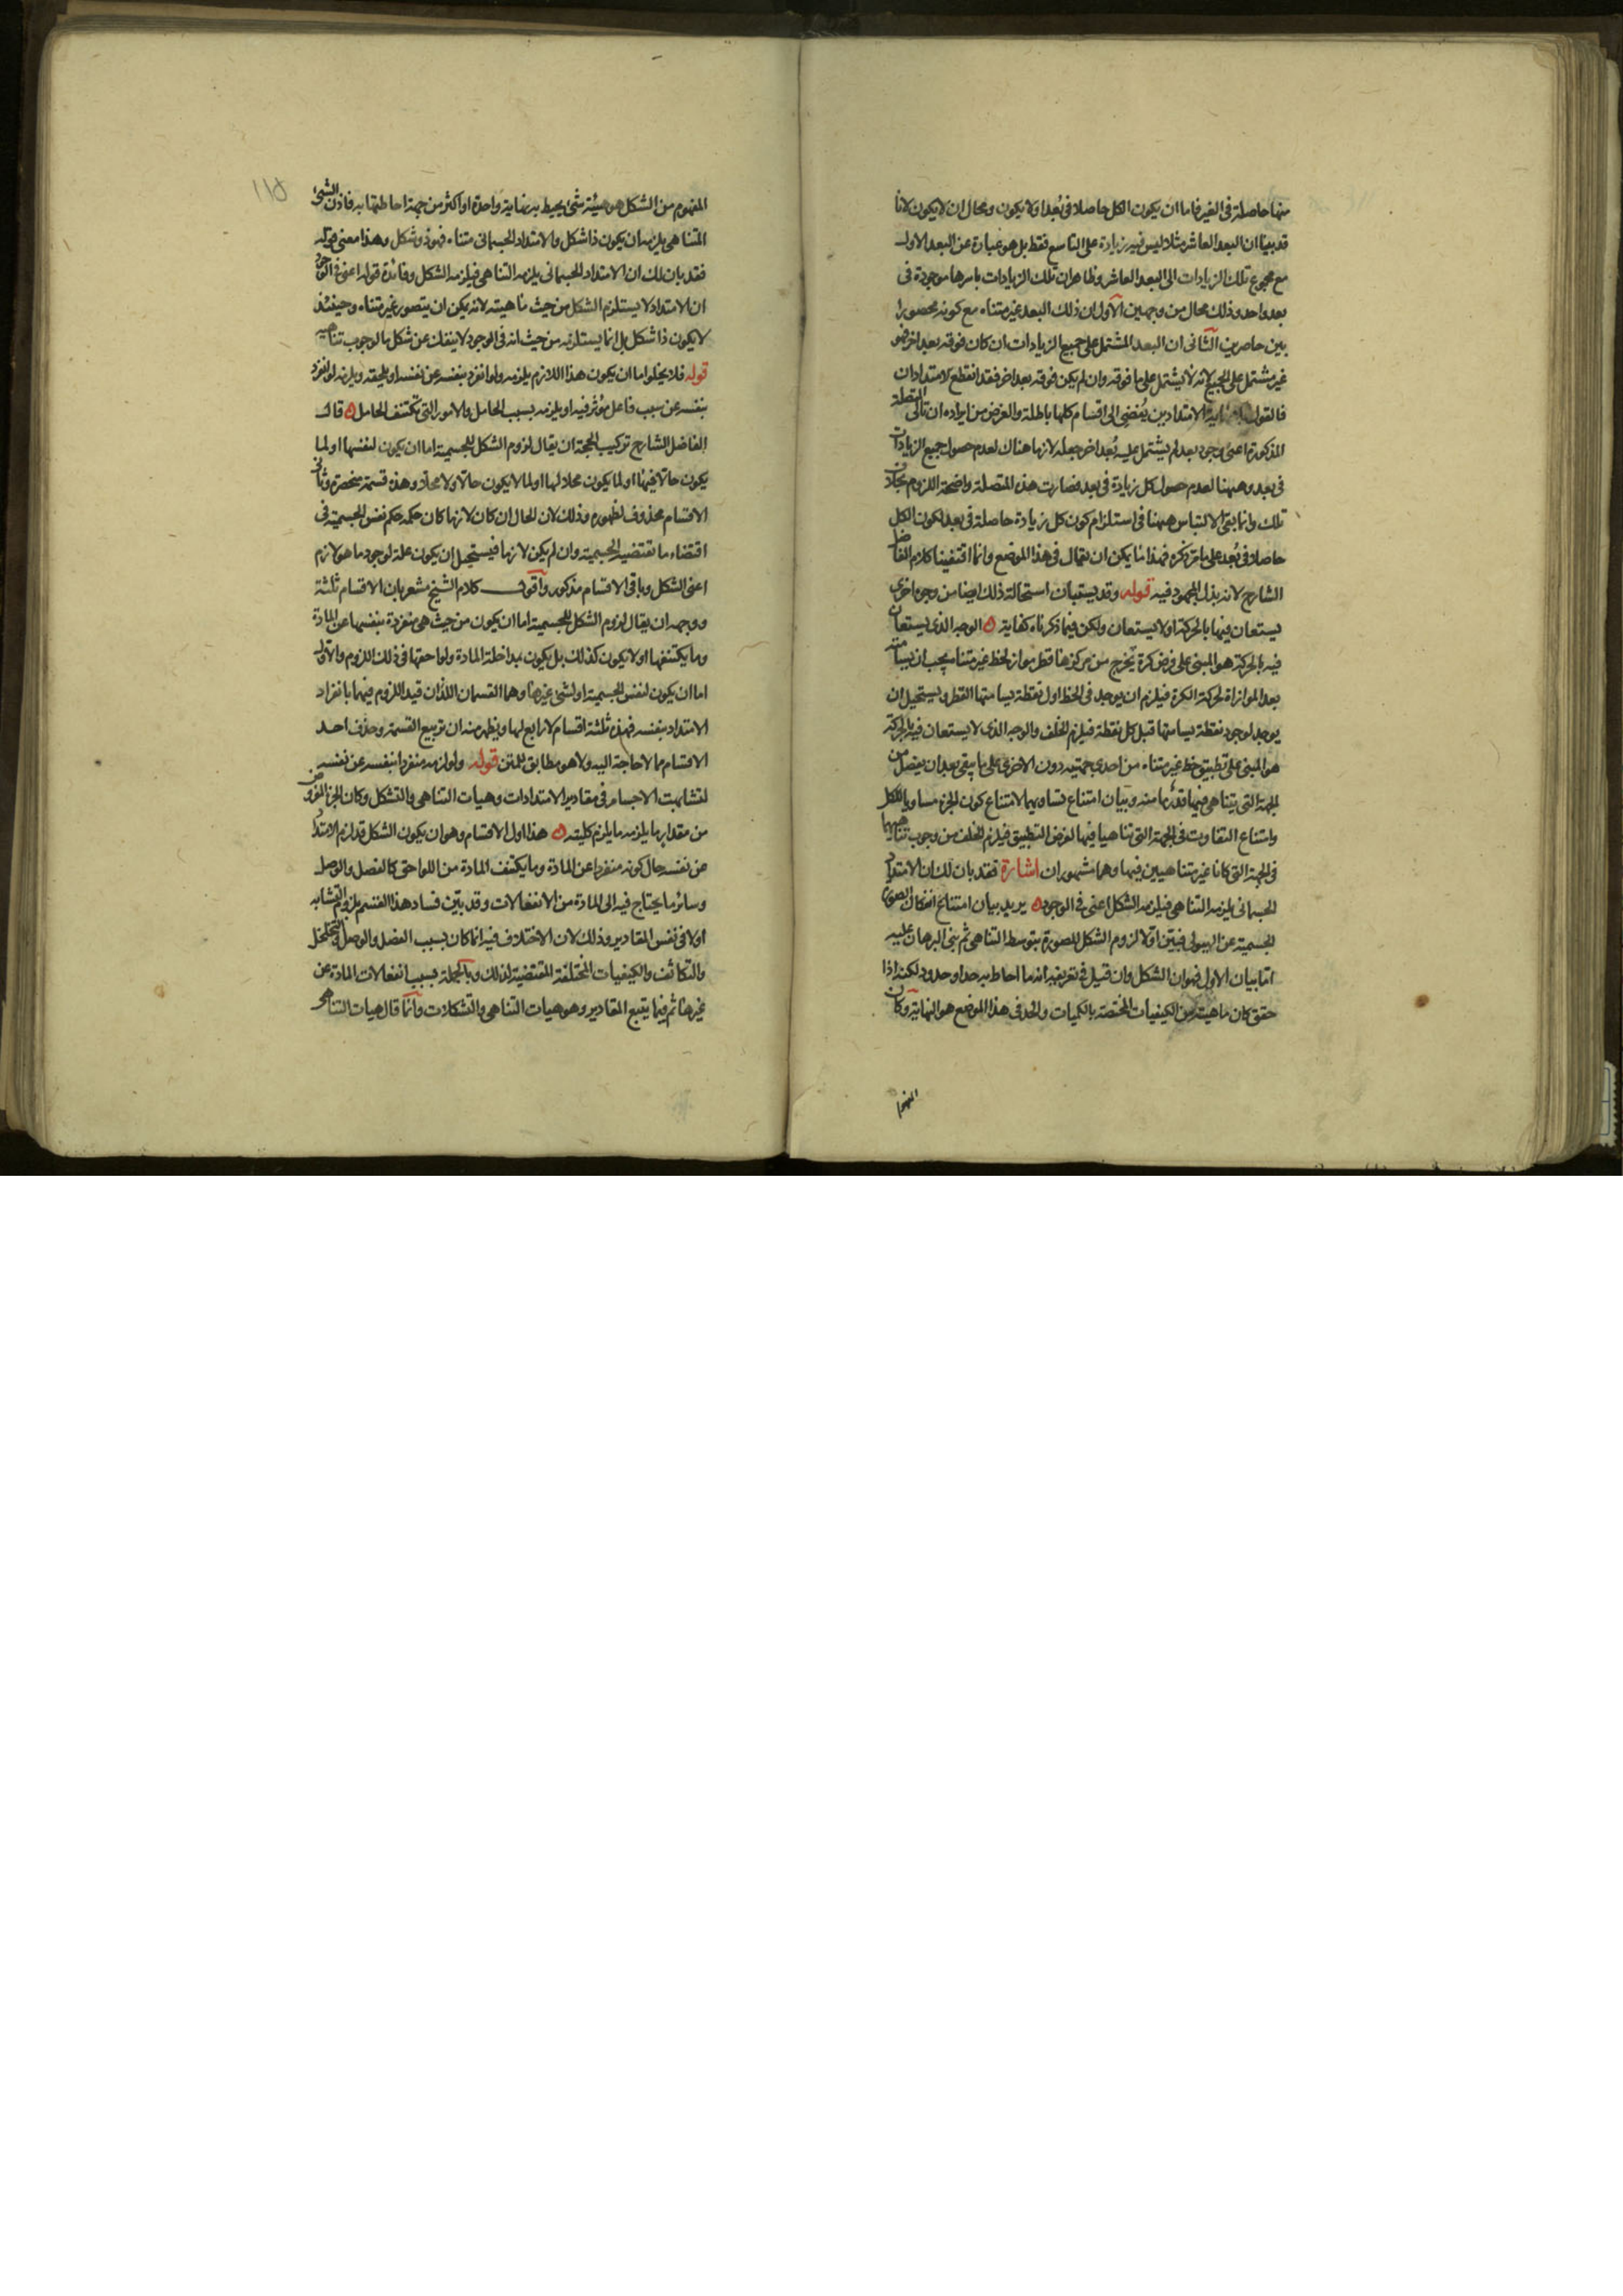 منها حاصلة فى الغير فاما ان يكون الكل حاصلا فى بُعد او لا يكون ومحال ان لا يكون لانا
قد بينا ان البعد العاشر مثلا ليس فيه زيادة على التاسع فقط بل هو عبارة عن البعد الاول
مع مجموع تلك الزيادات الى البعد العاشر وظاهر ان تلك الزيادات باسرها موجودة فى
بعد واحد وذلك محال من وجهين الاول ان ذلك البعد غير متناه مع كونه محصورا
بين حاصرين الثانى ان البعد المشتمل على جميع الزيادات ان كان فوقه بعد اخر فهو
غير مشتمل على الجميع لانه لا يشتمل على ما فوقه وان لم يكن فوقه بعد اخر فقد انقطع الامتدادان
فالقول الامتدادين يُفضى الى اقسام كلها باطلة والغرض من ايراده ان تالى المتصلة
المذكورة اعنى وجود بعد لم يشتمل عليه بُعد اخر جعله لازما هناك لعدم حصول جميع الزيادات
فى بعد وههنا لعدم حصول كل زيادة فى بعد فصارت هذه المتصلة واضحة اللزوم بخلاف
تلك وانما بقى الالتباس ههنا فى استلزام كون كل زيادة حاصلة فى بعد لكون الكل
حاصلا فى بُعد على ما مر ذكره فهذا ما يمكن ان يقال فى هذا الموضع وانما اقتفينا كلام الفاضل
الشارح لانه بذل المجهود فيه قوله وقد يستبان استحالة ذلك ايضا من وجوه اخرى
يستعان فيها بالحركة او لا يستعان ولكن فيما ذكرناه كفاية ه الوجه الذى يستعان
فيه بالحركة هو المبنى على فرض كرة يخرج من مركزها قطر مواز لخط غير متناه يجب ان يسامته
بعد الموازاة لحركة الكرة فيلزم ان يوجد فى الخط اول نقطة يسامتها القطر ويستحيل ان
يوجد لوجود نقطة يسامتها قبل كل نقطة فيلزم الخلف والوجه الذى لا يستعان فيه بالحركة
هو المبنى على تطبيق خط غير متناه من احدى جهتيه دون الاخرى على ما يبقى بعد ان يفصل من
الجهة التى يتناهى فيها قدرٌ ما منه وبيان امتناع تساويهما لامتناع كون الجزء مساويا للكل
وامتناع التفاوت فى الجهة التى تناهيا فيها لفرض التطبيق فيلزم الخلف من وجوب تناهيهما
فى الجهة التى كانا غير متناهيين فيها وهما مشهوران اشارة فقد بان لك ان الامتداد
الجسمانى يلزمه التناهى فيلزمه الشكل اعنى فى الوجود ه يريد بيان امتناع انفكاك الصورة
الجسمية عن الهيولى فبيّن اولا لزوم الشكل للصورة بتوسط التناهى ثم بنى البرهان عليه
اما بيان الاول فهو ان الشكل وان قيل فى تعريفه انه ما احاط به حد او حدود لكنه اذا
حقق كان ماهيته من الكيفيات المختصة بالكميات والحد فى هذا الموضع هو النهاية وكان
المفهوم من الشكل هو هيئة شىء يحيط به نهاية واحدة او اكثر من جهة احاطتها به فاذن الشىء
المتناهى يلزمه ان يكون ذا شكل والامتداد الجسمانى متناه فهو ذو شكل وهذا معنى قوله
فقد بان لك ان الامتداد الجسمانى يلزمه التناهى فيلزمه الشكل وفائدة قوله اعنى فى الوجود
ان الامتداد لا يستلزم الشكل من حيث ماهيته لانه يمكن ان يتصور غير متناه وحينئذ
لا يكون ذا شكل بل انما يستلزمه من حيث انه فى الوجود لا ينفك عن شكل ما لوجوب تناهيه
قوله فلا يخلوا اما ان يكون هذا اللازم يلزمه ولو انفرد بنفسه عن نفسه او يلحقه ويلزمه لو انفرد
بنفسه عن سبب فاعل مؤثر فيه او يلزمه بسبب الحامل والامور التى تكتنف الحامل ه قال
الفاضل الشارح تركيب الحجة ان يقال لزوم الشكل للجسمية اما ان يكون لنفسها او لما
يكون حالا فيها او لما يكون محلا لها او لما لا يكون حالا ولا محلا وهذه قسمة منحصرة وثانى
الاقسام محذوف لظهوره وذلك لان الحال ان كان لازما كان حكمه حكم نفس الجسمية فى
اقتضاء ما تقتضيه الجسمية وان لم يكن لازما فيستحيل ان يكون علة لوجود ما هو لازم
اعنى الشكل وباقى الاقسام مذكور واقول كلام الشيخ مشعر بان الاقسام ثلثة
ووجهه ان يقال لزوم الشكل للجسمية اما ان يكون من حيث هى منفردة بنفسها عن المادة
وما يكتنفها او لا يكون كذلك بل يكون بمداخلة المادة ولواحقها فى ذلك اللزوم والاول
اما ان يكون لنفس الجسمية او لشئ غيرها وهما القسمان اللذان قيد اللزوم فيهما بانفراد
الامتداد بنفسه فهذه ثلثة اقسام لا رابع لها ويظهر منه ان تربيع القسمة وحذف احد
الاقسام مما لا حاجة اليه ولا هو مطابق للمتن قوله ولو لزمه منفردا بنفسه عن نفسه
لتشابهت الاجسام فى مقادير الامتدادات وهيات التناهى والتشكل وكان الجزء المفروض
من مقدار ما يلزمه ما يلزم كليته ه هذا اول الاقسام وهو ان يكون الشكل قد لزم الامتداد
عن نفسه حال كونه منفردا عن المادة وما يكتنف المادة من اللواحق كالفصل والوصل
وسائر ما يحتاج فيه الى المادة من الانفعالات وقد بيّن فساد هذا القسم بلزوم التشابه
اولا فى نفس المقادير وذلك لان الاختلاف فيه انما كان بسبب الفصل والوصل والتخلخل
والتكاثف والكيفيات المختلفة المقتضية لذلك وبالجملة بسبب انفعالات المادة عن
غيرها ثم فيما يتبع المقادير وهو هيات التناهى والتشكلات وانما قال هيات التناهى